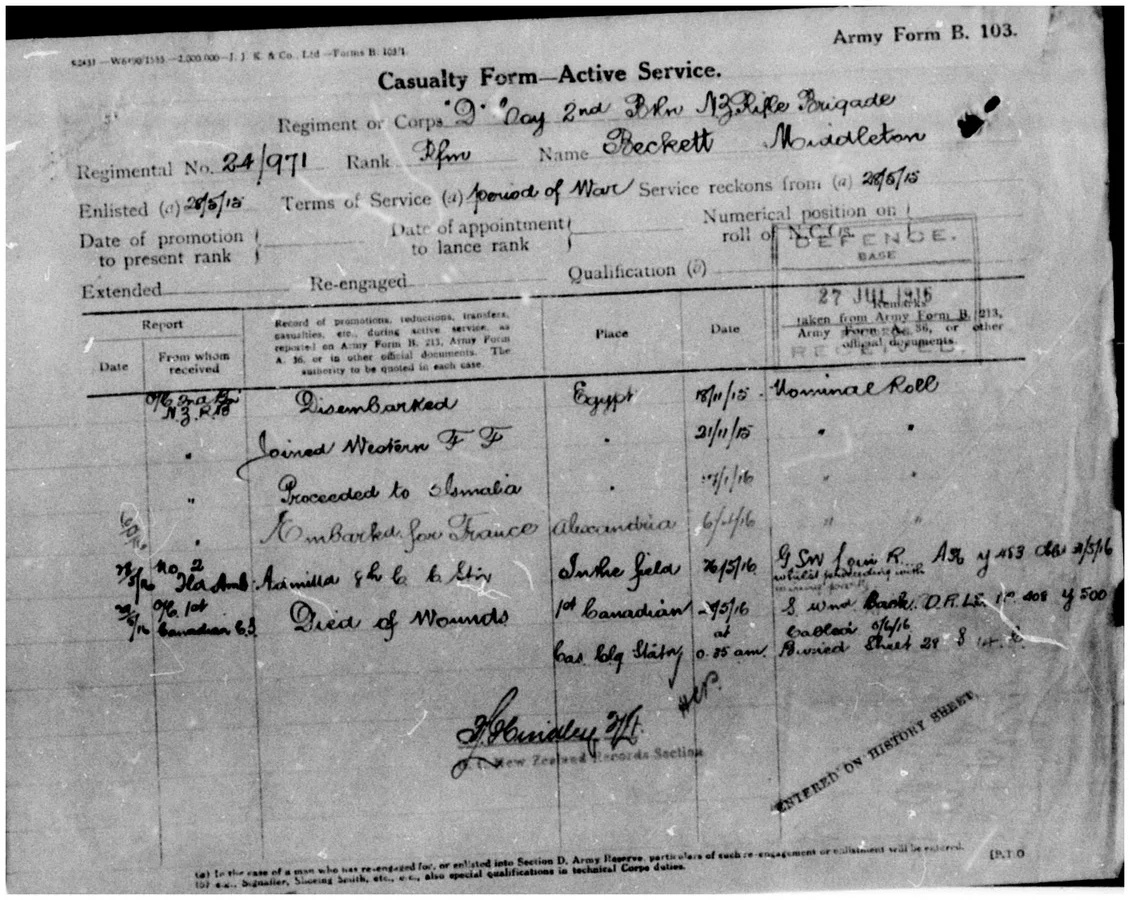 Army Form B. 103.
Casualty Form—Active Service.
Regiment or Corps "D" Coy 2nd Bkn NZ Rifle Brigade
Regimental No. 24/971 Rank Rfm Name Beckett Middleton
Enlisted (a) 28/5/15 Terms of Service (a) period of War Service reckons from (a) 28/5/15
Date of promotion to present rank
Date of appointment to lance rank
Numerical position on roll of N.C.Os.
Extended Re-engaged Qualification (b)
DEFENCE.
BASE
27 JUL 1916
RECEIVED.
Report
Date
From whom received
Record of promotions, reductions, transfers, casualties, etc., during active service, as reported on Army Form B. 213, Army Form A. 36, or in other official documents. The authority to be quoted in each case.
Place
Date
Remarks taken from Army Form B. 213, Army Form A. 36, or other official documents.
O/C 2nd Bn N.Z.R.B Disembarked Egypt 18/11/15 Nominal Roll
" Joined Western F F " 21/11/15 " "
" Proceeded to Ismalia " " "
" Embarked for France Alexandria " "
No. 2 Fld Amb. In the field G SW
whilst proceeding with
O/C 1st Canadian C.S Died of Wounds 1st Canadian S wnd Back.
Cas Clg Statn at 0.35 am. Cabled 5/6/16
Buried Sheet 28
New Zealand Records Section
ENTERED ON HISTORY SHEET
(a) In the case of a man who has re-engaged for, or enlisted into Section D, Army Reserve, particulars of such re-engagement or enlistment will be entered.
(b) e.g., Signaller, Shoeing Smith, etc., etc., also special qualifications in technical Corps duties.
[P.T.O